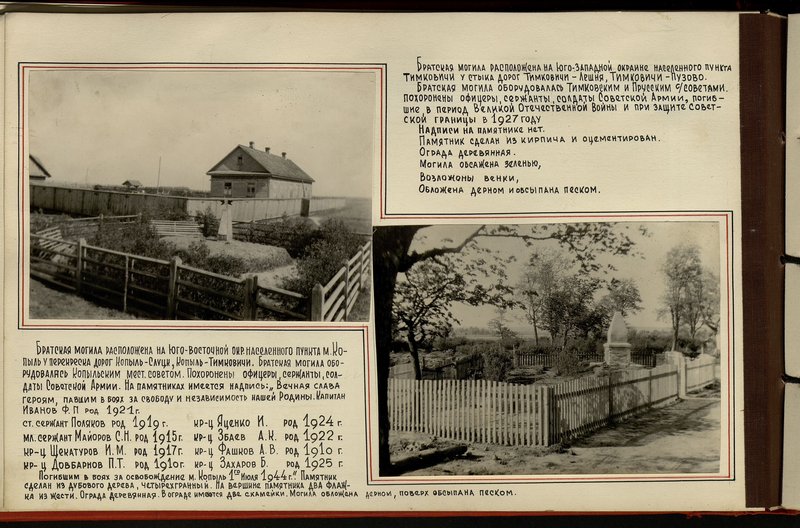 Братская могила расположена на Юго-Западной окраине населенного пункта
Тимковичи у стыка дорог Тимковичи – Лешня, Тимковичи – Пузово.
Братская могила оборудовалась Тимковским и Прусским с/советами.
Похоронены офицеры, сержанты, солдаты Советской Армии, погиб-
шие в период Великой Отечественной Войны и при защите Совет-
ской границы в 1927 году
Надписи на памятнике нет.
Памятник сделан из кирпича и оцементирован.
Ограда деревянная.
Могила обсажена зеленью,
Возложоны венки,
Обложена дерном и обсыпана песком.
Братская могила расположена на Юго-Восточной окр. населенного пункта м. Ко-
пыль у перекреска дорог Копыль-Слуцк, Копыль-Тимковичи. Братская могила обо-
рудовалясь Копыльским мест. советом. Похоронены офицеры, сержанты, сол-
даты Советской Армии. На памятниках имеется надпись: „Вечная слава
героям, павшим в боях за свободу и независимость нашей Родины. Капитан
Иванов Ф. П род 1921 г.
ст. сержант Поляков род 1919 г. кр-ц Яценко И. род 1924 г.
мл. сержант Майоров С.Н. род 1915 г. кр-ц Збаев А.К. род 1922 г.
кр-ц Щекатуров И.М. род 1917 г. кр-ц Фашков А.В. род 1910 г.
кр-ц Довбарнов П.Т. род 1910 г. кр-ц Захаров Б. род 1925 г.
Погибшим в боях за освобождение м. Копыль 1го Июля 1944 г." Памятник
сделан из дубового дерева, четырехгранный. На вершине памятника два флаж-
ка из жести. Ограда деревянная. В ограде имеются две скамейки. Могила обложена дерном, поверх обсыпана песком.